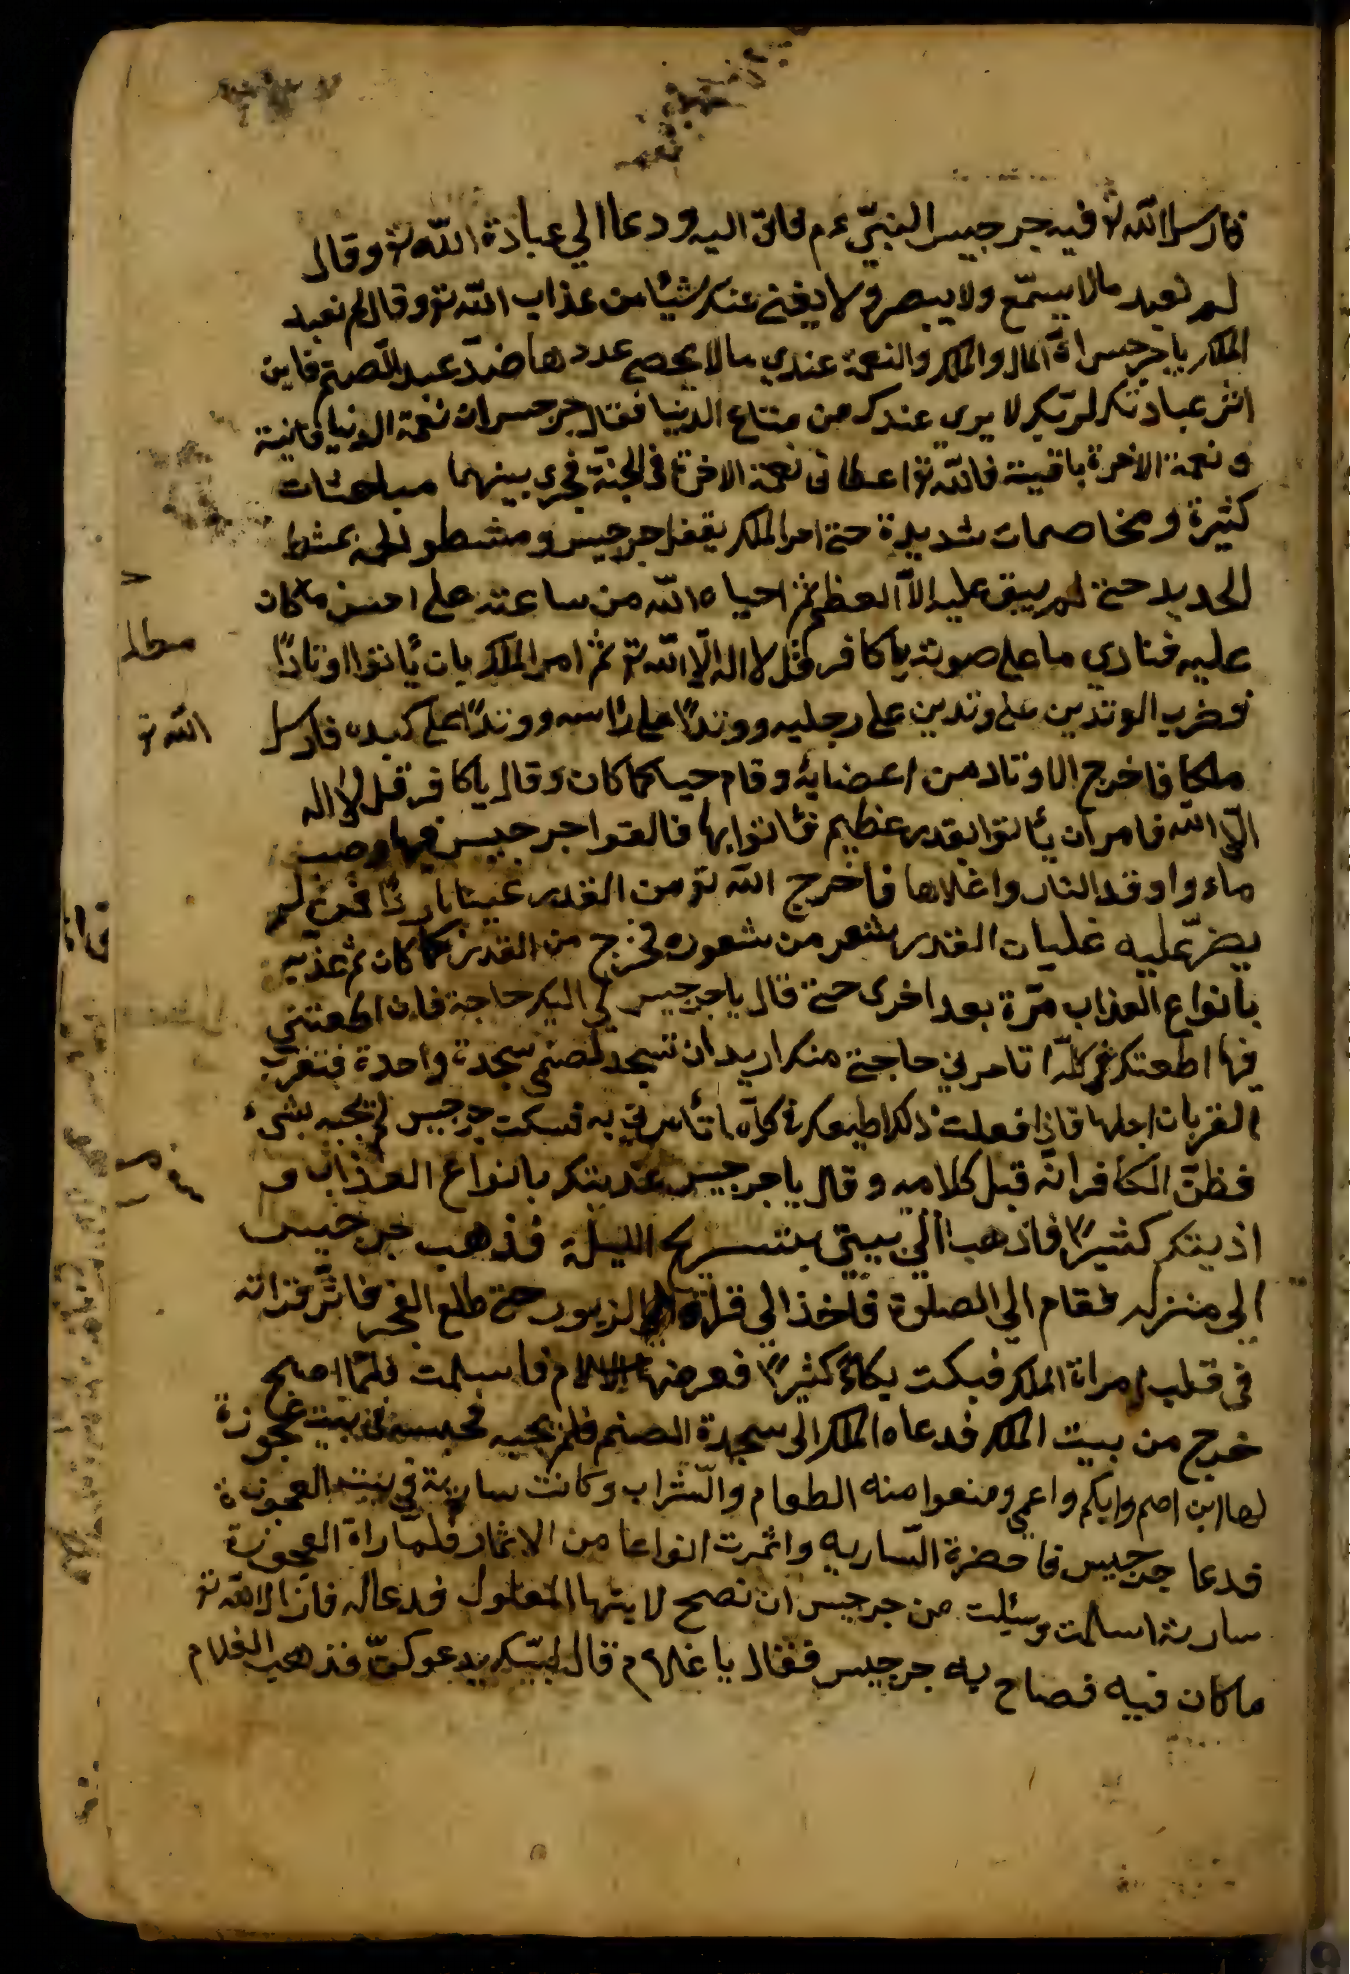 فارسل الله تع فيه جرجيس النبي عم فاتى اليه ودعا الي عبادة الله تع وقال
لم تعبد مالا يسمع ولا يبصر ولا يغني عنك شيئا من عذاب الله تع وقال لم نعبد
الملك يا جرجيس ان المال والملك والنعمة عندي مالا يحصي عددها ضد عبد الصنم فاين
اثر عبادتك لربك لا يري عندك من متاع الدنيا فقال جرجيس ان نعمة الدنيا فانية
ونعمة الاخرة باقية فالله تع اعطانى نعمة الاخرة فى الجنة فجرى بينهما مباحثات
كثيرة ومخاصمات شديدة حتى امر الملك بقفل جرجيس ومشطو لحمه بمشط
الحديد حتى لم يبق عليه الا العظم ثم احياه الله من ساعته على احسن ماكان
عليه فنادي باعلي صوته يا كافر قل لا اله الا الله تع ثم امر الملك بان يأتوا اوتادًا
فضرب الوتدين على وتدين على رجليه ووتدًا على رأسه ووتدًا على كبده فارسل
الله تع
ملكا فاخرج الاوتاد من اعضايه وقام حيا كما كان وقال يا كافر قل لا اله
الا الله فامر ان يأتوا بقدر عظيم فأتوا بها فالقوا جرجيس فيها وصب
ماء واوقد النار واغلاها فاخرج الله تع من القدر عينا باردًا لم
يضر عليه غليان القدر بشعر من شعوره فخرج من القدر كما كان ثم عذبه
بانواع العذاب مرة بعد اخرى حتى قال يا جرجيس لي اليك حاجة فان اطعتني
فيها اطعتك فى كل ما تامرني حاجتى منك اريد ان تسجد لصنمي سجدة واحدة فتقرب
القربان اجلها فاذا فعلت ذلك اطيعك في كل ما تأمرني به فسكت جرجيس لم يجبه بشيء
فظن الكافر انه قبل كلامه وقال يا جرجيس عذبتك بانواع العذاب و
اذيتك كثيرًا فاذهب الي بيتي يستريح الليلة فذهب جرجيس
الى منزله فقام الي الصلوة فاخذ الي قراة الزبور حتى طلع الفجر فاثر قراته
فى قلب امراة الملك فبكت بكاءً كثيرًا فعرضها الاسلام فاسلمت فلما اصبح
خرج من بيت الملك فدعاه الملك الى سجدة الصنم فلم يجيبه فحبسه فى بيت عجوزة
لها ابن اصم وابكم واعمي ومنعوا منه الطعام والشراب وكانت سارية في بيت العجوزة
فدعا جرجيس فاحضرة السارية واثمرت انواعا من الاثمار فلما راة العجوزة
سارية اسلمت وسئلت من جرجيس ان نصح لابنها المعلول فدعا له فازال الله تع
ماكان فيه فصاح به جرجيس فقال يا غلام قال لبيك فذهب الغلام